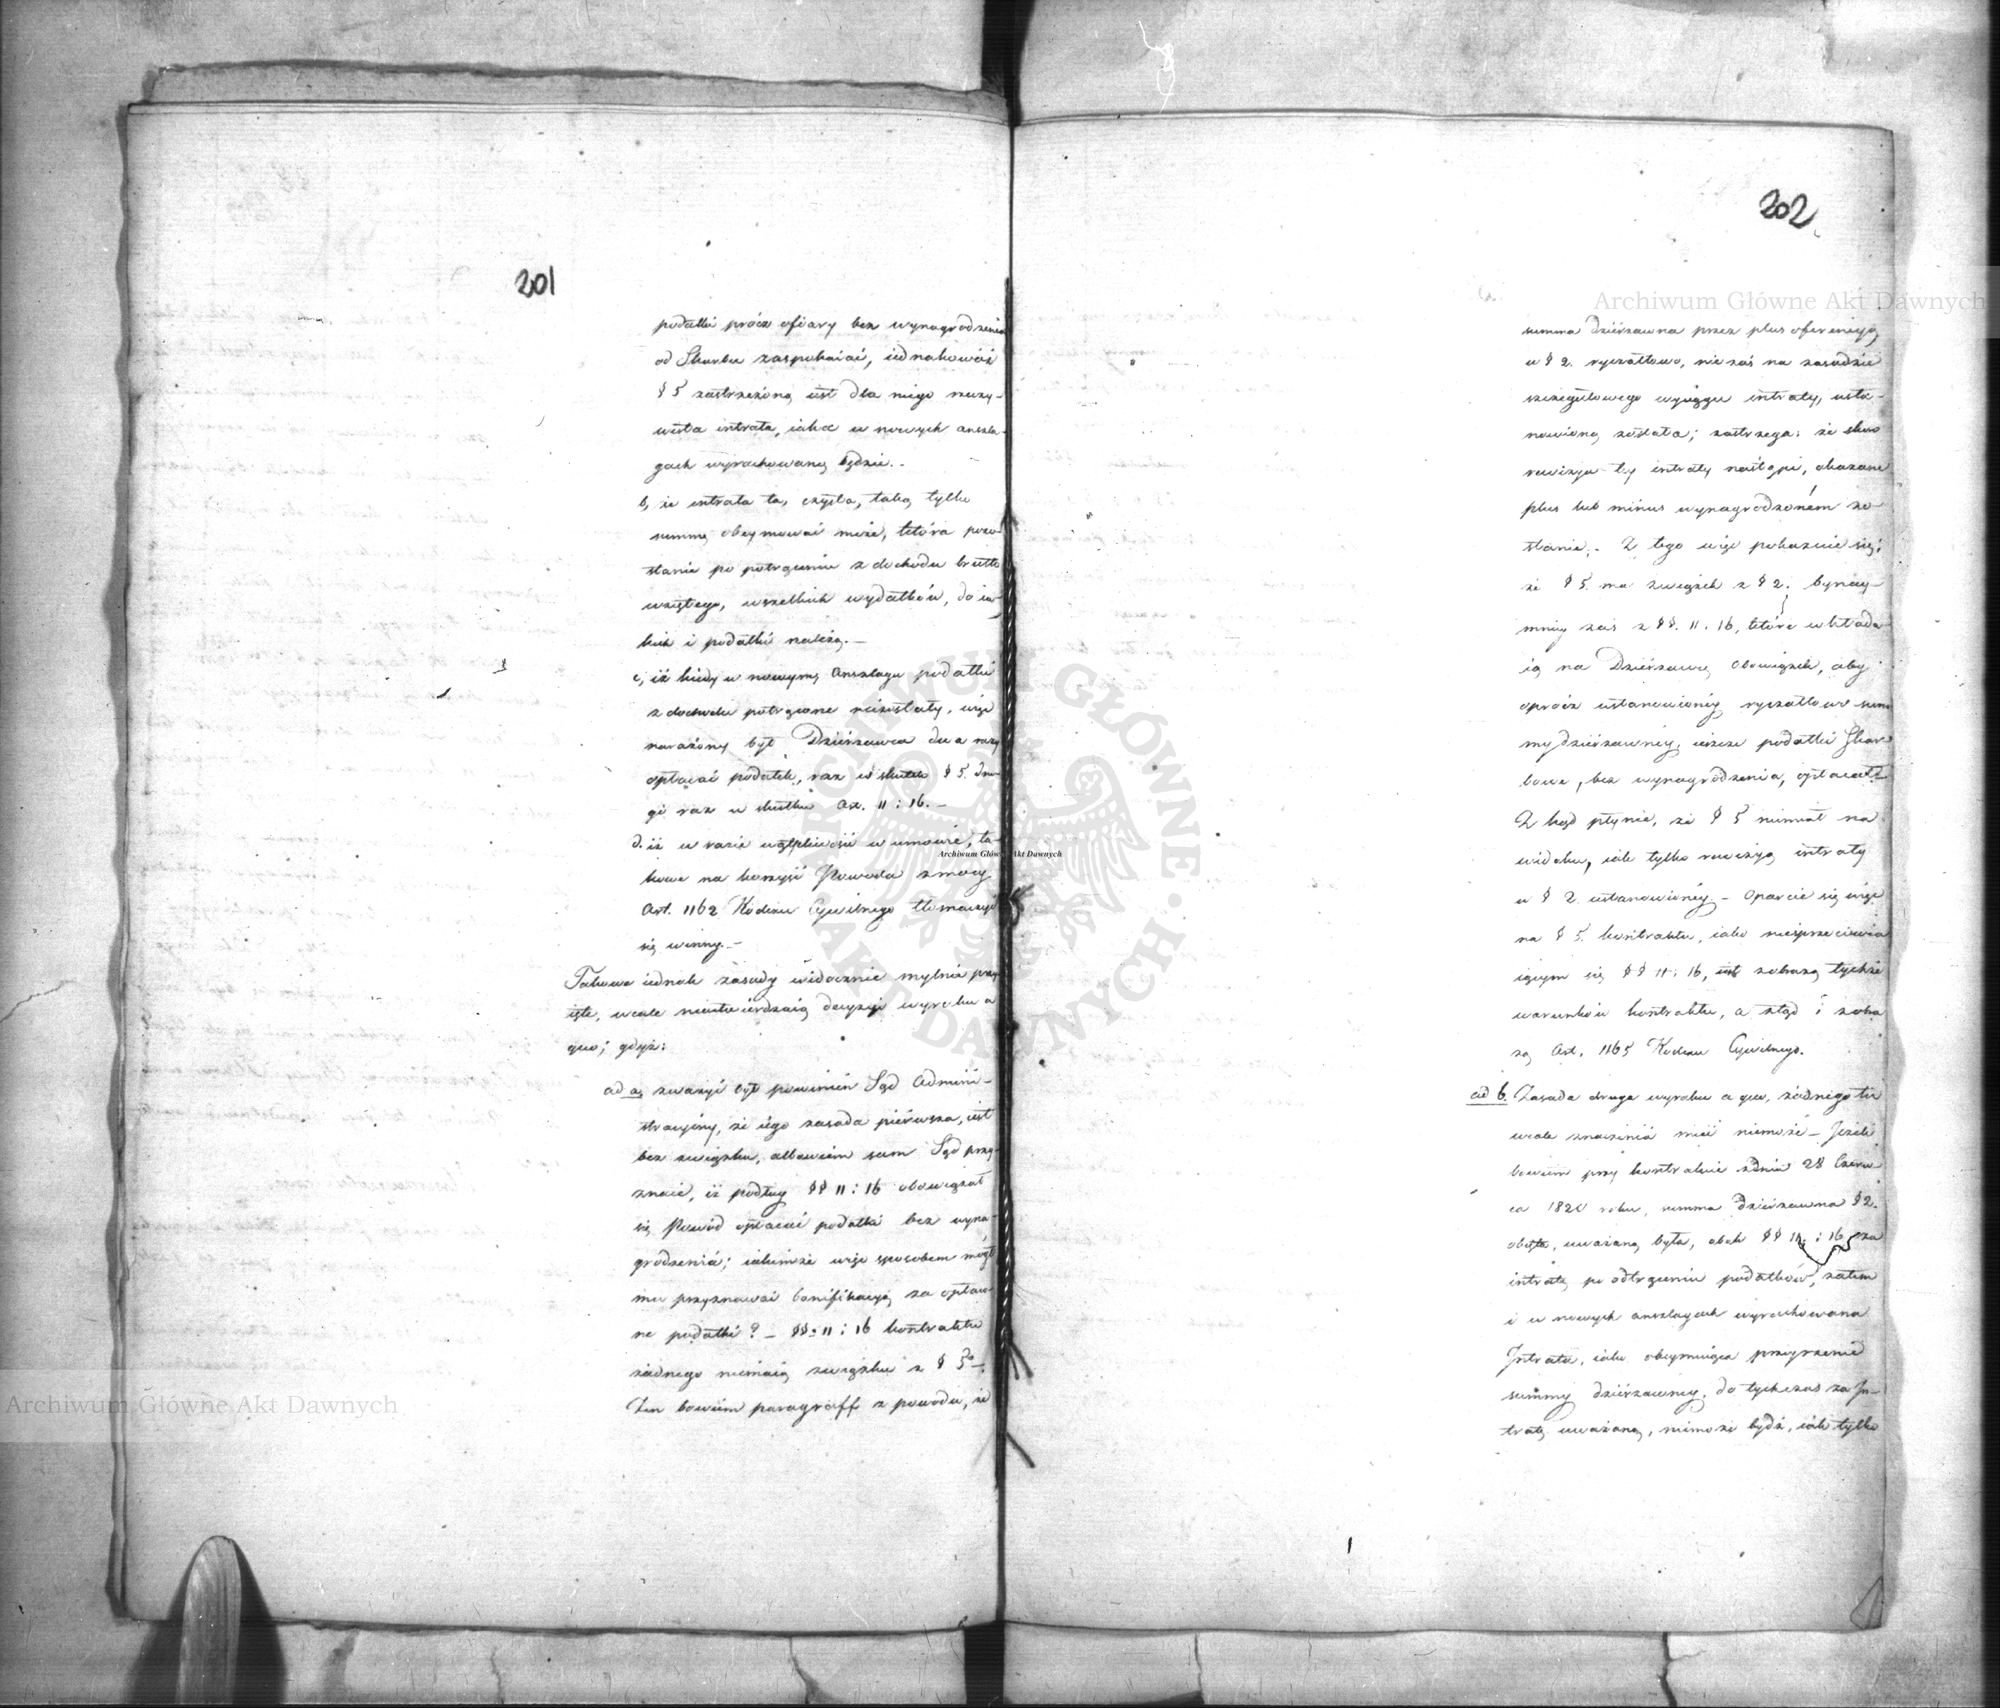 201
podatki prócz ofiary bez wynagrodzenia
od Skarbu zaspokaiać, iednakowóż
§ 5 zastrzeżoną iest dla niego rzeczy-
wista intrata, iaka w nowych anszla-
gach wyrachowaną będzie.-
b, że intrata ta, czysta, taką tylko
summę obeymować może, która pozo-
stanie po potrąceniu z dochodu brutto
wziętego, wszelkich wydatków, do ia-
kich i podatki należą.-
c, iż kiedy w nowym Anszlagu podatki
z dochodu potrącone niezostały, więc
narażony był Dzierżawca dwa razy
opłacać podatek, raz w skutek § 5. dru-
gi raz w skutku Art. 11 i 16.-
d. iż w razie wątpliwości w umowie, ta-
kowa na korzyść Powoda z mocy
Art. 1162 Kodexu Cywilnego tłomaczyć
się winny.-
Takowe iednak zasady widocznie mylnie przy-
ięte, wcale nieutwierdzaią decyzyi wyroku a
quo; gdyż:
ad a, zważyć był powinien Sąd Admini-
stracyiny, że iego zasada pierwsza, iest
bez związku, albowiem sam Sąd przy-
znaie, iż podług §§ 11 i 16 obowiązał
się Powód opłacać podatki bez wyna-
grodzenia; iakimże więc sposobem mógł
mu przyznawać bonifikacyą za opłaco-
ne podatki? - §§. 11 i 16 kontraktu
żadnego niemaią związku z § 5-
Ten bowiem paragraff z powodu, iż
202
summa dzierżawna przez plus oferencyą
w § 2. ryczałtowo, nie zaś na zasadzie
szczegułowego wyciągu intraty, usta-
nowioną została; zastrzega: że skoro
rewizya tey intraty nastąpi, okazane
plus lub minus wynagrodzonem zo-
stanie.- Z tego więc pokazuie się;
że § 5. ma związek z § 2. bynay-
mniey zaś z §§. 11. 16, które wkłada-
ią na Dzierżawcę obowiązek, aby
oprócz ustanowioney ryczałtowo sum-
my dzierżawney, ieszcze podatki Skar-
bowe, bez wynagrodzenia, opłacał.-
Z kąd płynie, że § 5 niemiał na
widoku, iak tylko rewizyą intraty
w § 2. ustanowioney.- Oparcie się więc
na § 5. kontraktu, iako niesprzeciwia-
iącym się §§ 11 i 16, iest obrazą tychże
warunków kontraktu, a ztąd i obra-
zą Art. 1165 Kodexu Cywilnego.
ad b. Zasada druga wyroku a quo, żadnego tu
wcale znaczenia mieć niemoże - Jeżeli
bowiem przy kontrakcie z dnia 28 Czerw-
ca 1820 roku, summa dzierżawna § 2.
obięta, uważaną była, obok §§ 11. i 16 za
intratę po odtrąceniu podatków, zatem
i w nowych anszlagach wyrachowana
Intrata, iako obeymuiąca przeyrzenie
summy dzierżawney, do tychczas za In-
tratę uważaną, niemoże bydź, iak tylko